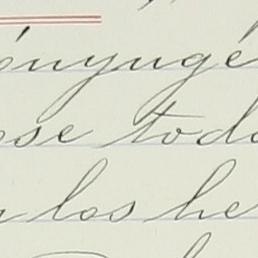 ónyugé
ose todo
los he